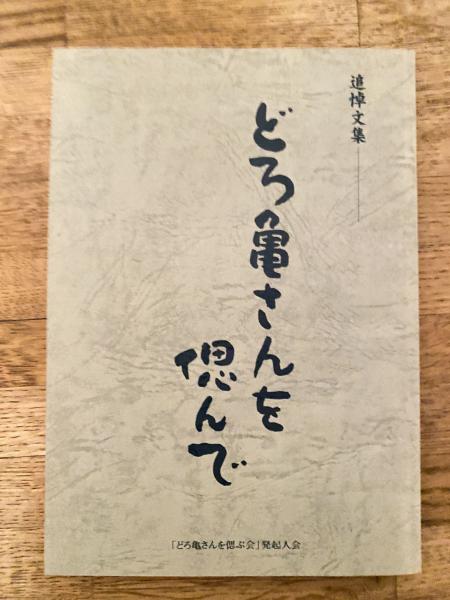 追悼文集
どろ亀さんを
偲んで
「どろ亀さんを偲ぶ会」発起人会